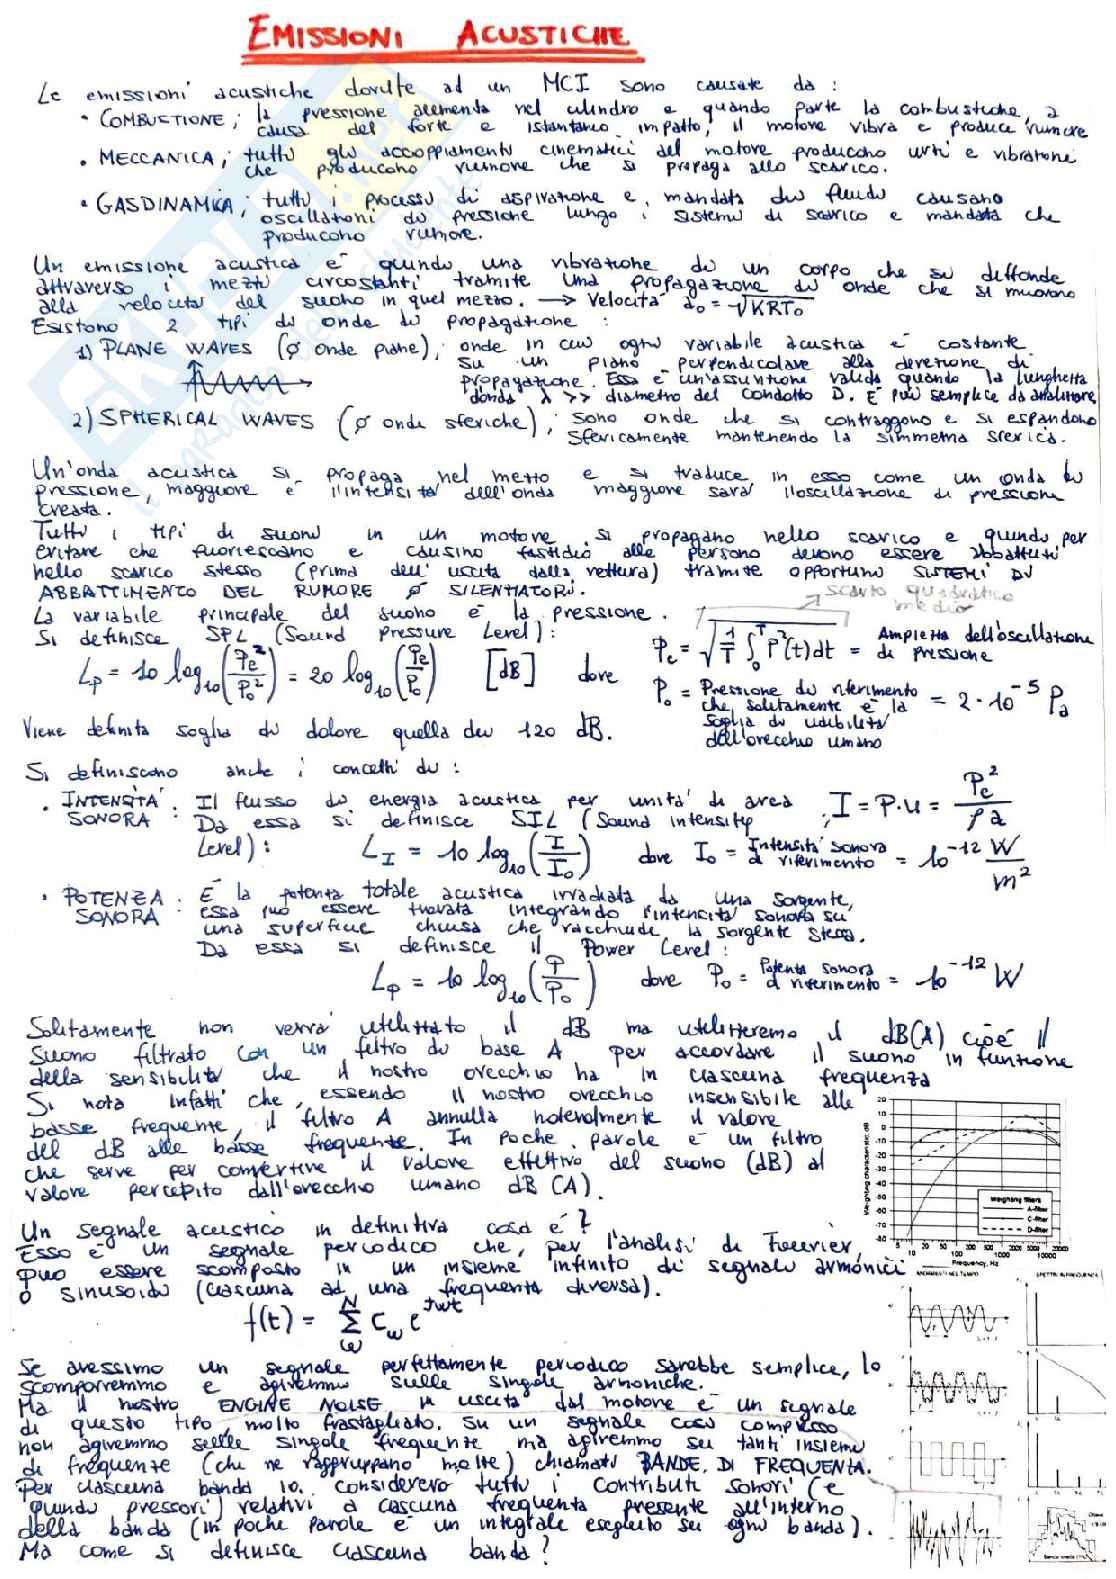 EMISSIONI ACUSTICHE
Le emissioni acustiche dovute ad un MCI sono causate da :
• COMBUSTIONE; la pressione aumenta nel cilindro e quando parte la combustione, a
causa del forte e istantaneo impatto, il motore vibra e produce rumore
• MECCANICA; tutti gli accoppiamenti cinematici del motore producono urti e vibrazioni
che producono rumore che si propaga allo scarico.
• GASDINAMICA; tutti i processi di aspirazione e mandata dei fluidi causano
oscillazioni di pressione lungo i sistemi di scarico e mandata che
producono rumore.
Un emissione acustica è quindi una vibrazione di un corpo che si diffonde
attraverso i mezzi circostanti tramite una propagazione di onde che si muovono
alla velocità del suono in quel mezzo. → Velocità a₀ = √KRT₀
Esistono 2 tipi di onde di propagazione :
1) PLANE WAVES (o onde piane); onde in cui ogni variabile acustica è costante
su un piano perpendicolare alla direzione di
propagazione. Essa è un'assunzione valida quando la lunghezza
d'onda λ >> diametro del condotto D. È più semplice da analizzare
2) SPHERICAL WAVES (o onde sferiche); sono onde che si contraggono e si espandono
sfericamente mantenendo la simmetria sferica.
Un'onda acustica si propaga nel mezzo e si traduce in esso come un onda di
pressione, maggiore è l'intensità dell'onda maggiore sarà l'oscillazione di pressione
creata.
Tutti i tipi di suoni in un motore si propagano nello scarico e quindi per
evitare che fuoriescano e causino fastidio alle persone devono essere abbattuti
nello scarico stesso (prima dell'uscita dalla vettura) tramite opportuni SISTEMI DI
ABBATTIMENTO DEL RUMORE o SILENZIATORI.
scarto quadratico
medio
La variabile principale del suono è la pressione.
Si definisce SPL (Sound Pressure Level):
Lp = 10 log₁₀(Pe²/P₀²) = 20 log₁₀(Pe/P₀) [dB] dove
Pe = √(1/T ∫₀ᵀ P²(t)dt) = Ampiezza dell'oscillazione
di pressione
P₀ = Pressione di riferimento
che solitamente è la
soglia di udibilità
dell'orecchio umano
= 2·10⁻⁵ Pa
Viene definita soglia di dolore quella dei 120 dB.
Si definiscono anche i concetti di :
• INTENSITÀ SONORA : Il flusso di energia acustica per unità di area ; I = P·u = Pe²/ρa
Da essa si definisce SIL (Sound intensity
Level): L_I = 10 log₁₀(I/I₀) dove I₀ = Intensità sonora di riferimento = 10⁻¹² W/m²
• POTENZA SONORA : È la potenza totale acustica irradiata da una sorgente,
essa può essere trovata integrando l'intensità sonora su
una superficie chiusa che racchiude la sorgente stessa.
Da essa si definisce il Power Level:
Lp = 10 log₁₀(P/P₀) dove P₀ = Potenza sonora di riferimento = 10⁻¹² W
Solitamente non verrà utilizzato il dB ma utilizzeremo il dB(A) cioè il
suono filtrato con un filtro di base A per accordare il suono in funzione
della sensibilità che il nostro orecchio ha in ciascuna frequenza
Si nota infatti che, essendo il nostro orecchio insensibile alle
basse frequenze, il filtro A annulla notevolmente il valore
del dB alle basse frequenze. In poche parole è un filtro
che serve per convertire il valore effettivo del suono (dB) al
valore percepito dall'orecchio umano dB (A).
Weighting characteristic dB
20
10
0
-10
-20
-30
-40
-50
-60
-70
-80
Weighting filters
A-filter
C-filter
D-filter
5 10 20 50 100 200 500 1000 2000 5000 10000 20000
Frequency, Hz
Un segnale acustico in definitiva cosa è?
Esso è un segnale periodico che, per l'analisi di Fourier,
può essere scomposto in un insieme infinito di segnali armonici
o sinusoidi (ciascuna ad una frequenza diversa).
f(t) = Σ Cω e^jωt
ANDAMENTI NEL TEMPO
SPETTRI IN FREQUENZA
Se avessimo un segnale perfettamente periodico sarebbe semplice, lo
scomporremmo e agiremmo sulle singole armoniche.
Ma il nostro ENGINE NOISE in uscita dal motore è un segnale
di questo tipo, molto frastagliato. Su un segnale così complesso
non agiremmo sulle singole frequenze ma agiremmo su tanti insiemi
di frequenze (che ne raggruppano molte) chiamati BANDE DI FREQUENZA.
Per ciascuna banda io considererò tutti i contributi sonori (e
quindi pressori) relativi a ciascuna frequenza presente all'interno
della banda (in poche parole è un integrale eseguito su ogni banda).
Ma come si definisce ciascuna banda?